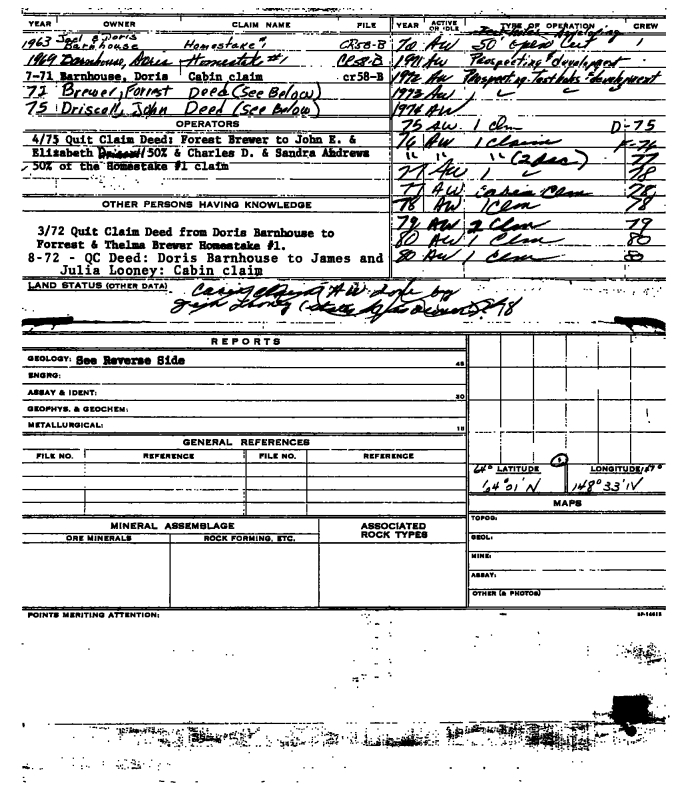 YEAR OWNER CLAIM NAME FILE YEAR ACTIVE OR IDLE TYPE OF OPERATION CREW
1963 Joel & Doris Barnhouse Homestake #1 CR58-B 70 AW 50' open cut 1
1969 Barnhouse, Doris Homestake #1 CR58-B 1971 AW Prospecting & development
7-71 Barnhouse, Doris Cabin claim cr58-B 1972 AW Prospecting - Test holes & development
72 Brewer, Forrest Deed (See Below) 1973 AW
75 Driscoll, John Deed (See Below) 1974 AW
OPERATORS
75 AW 1 Clm D-75
4/75 Quit Claim Deed: Forest Brewer to John E. &
76 AW 1 Claim
Elizabeth 50% & Charles D. & Sandra Andrews
" " " 77
50% of the Homestake #1 claim
77 AW 1 78
77 AW Cabin Clm 78
OTHER PERSONS HAVING KNOWLEDGE
78 AW 1 Clm 78
79 AW 2 Clm 79
3/72 Quit Claim Deed from Doris Barnhouse to
80 AW 1 Clm 80
Forrest & Thelma Brewer Homestake #1.
80 AW 1 Clm 80
8-72 - QC Deed: Doris Barnhouse to James and
Julia Looney: Cabin claim
LAND STATUS (OTHER DATA)
Cabin claim AW by
Looney 78
REPORTS
GEOLOGY: See Reverse Side 45
ENGRG:
ASSAY & IDENT: 30
GEOPHYS. & GEOCHEM:
METALLURGICAL: 15
GENERAL REFERENCES
FILE NO. REFERENCE FILE NO. REFERENCE
64° LATITUDE LONGITUDE
64° 01' N 148° 33' W
MAPS
MINERAL ASSEMBLAGE ASSOCIATED ROCK TYPES
ORE MINERALS ROCK FORMING, ETC.
TOPOG:
GEOL:
MINE:
ASSAY:
OTHER (& PHOTOS)
POINTS MERITING ATTENTION: